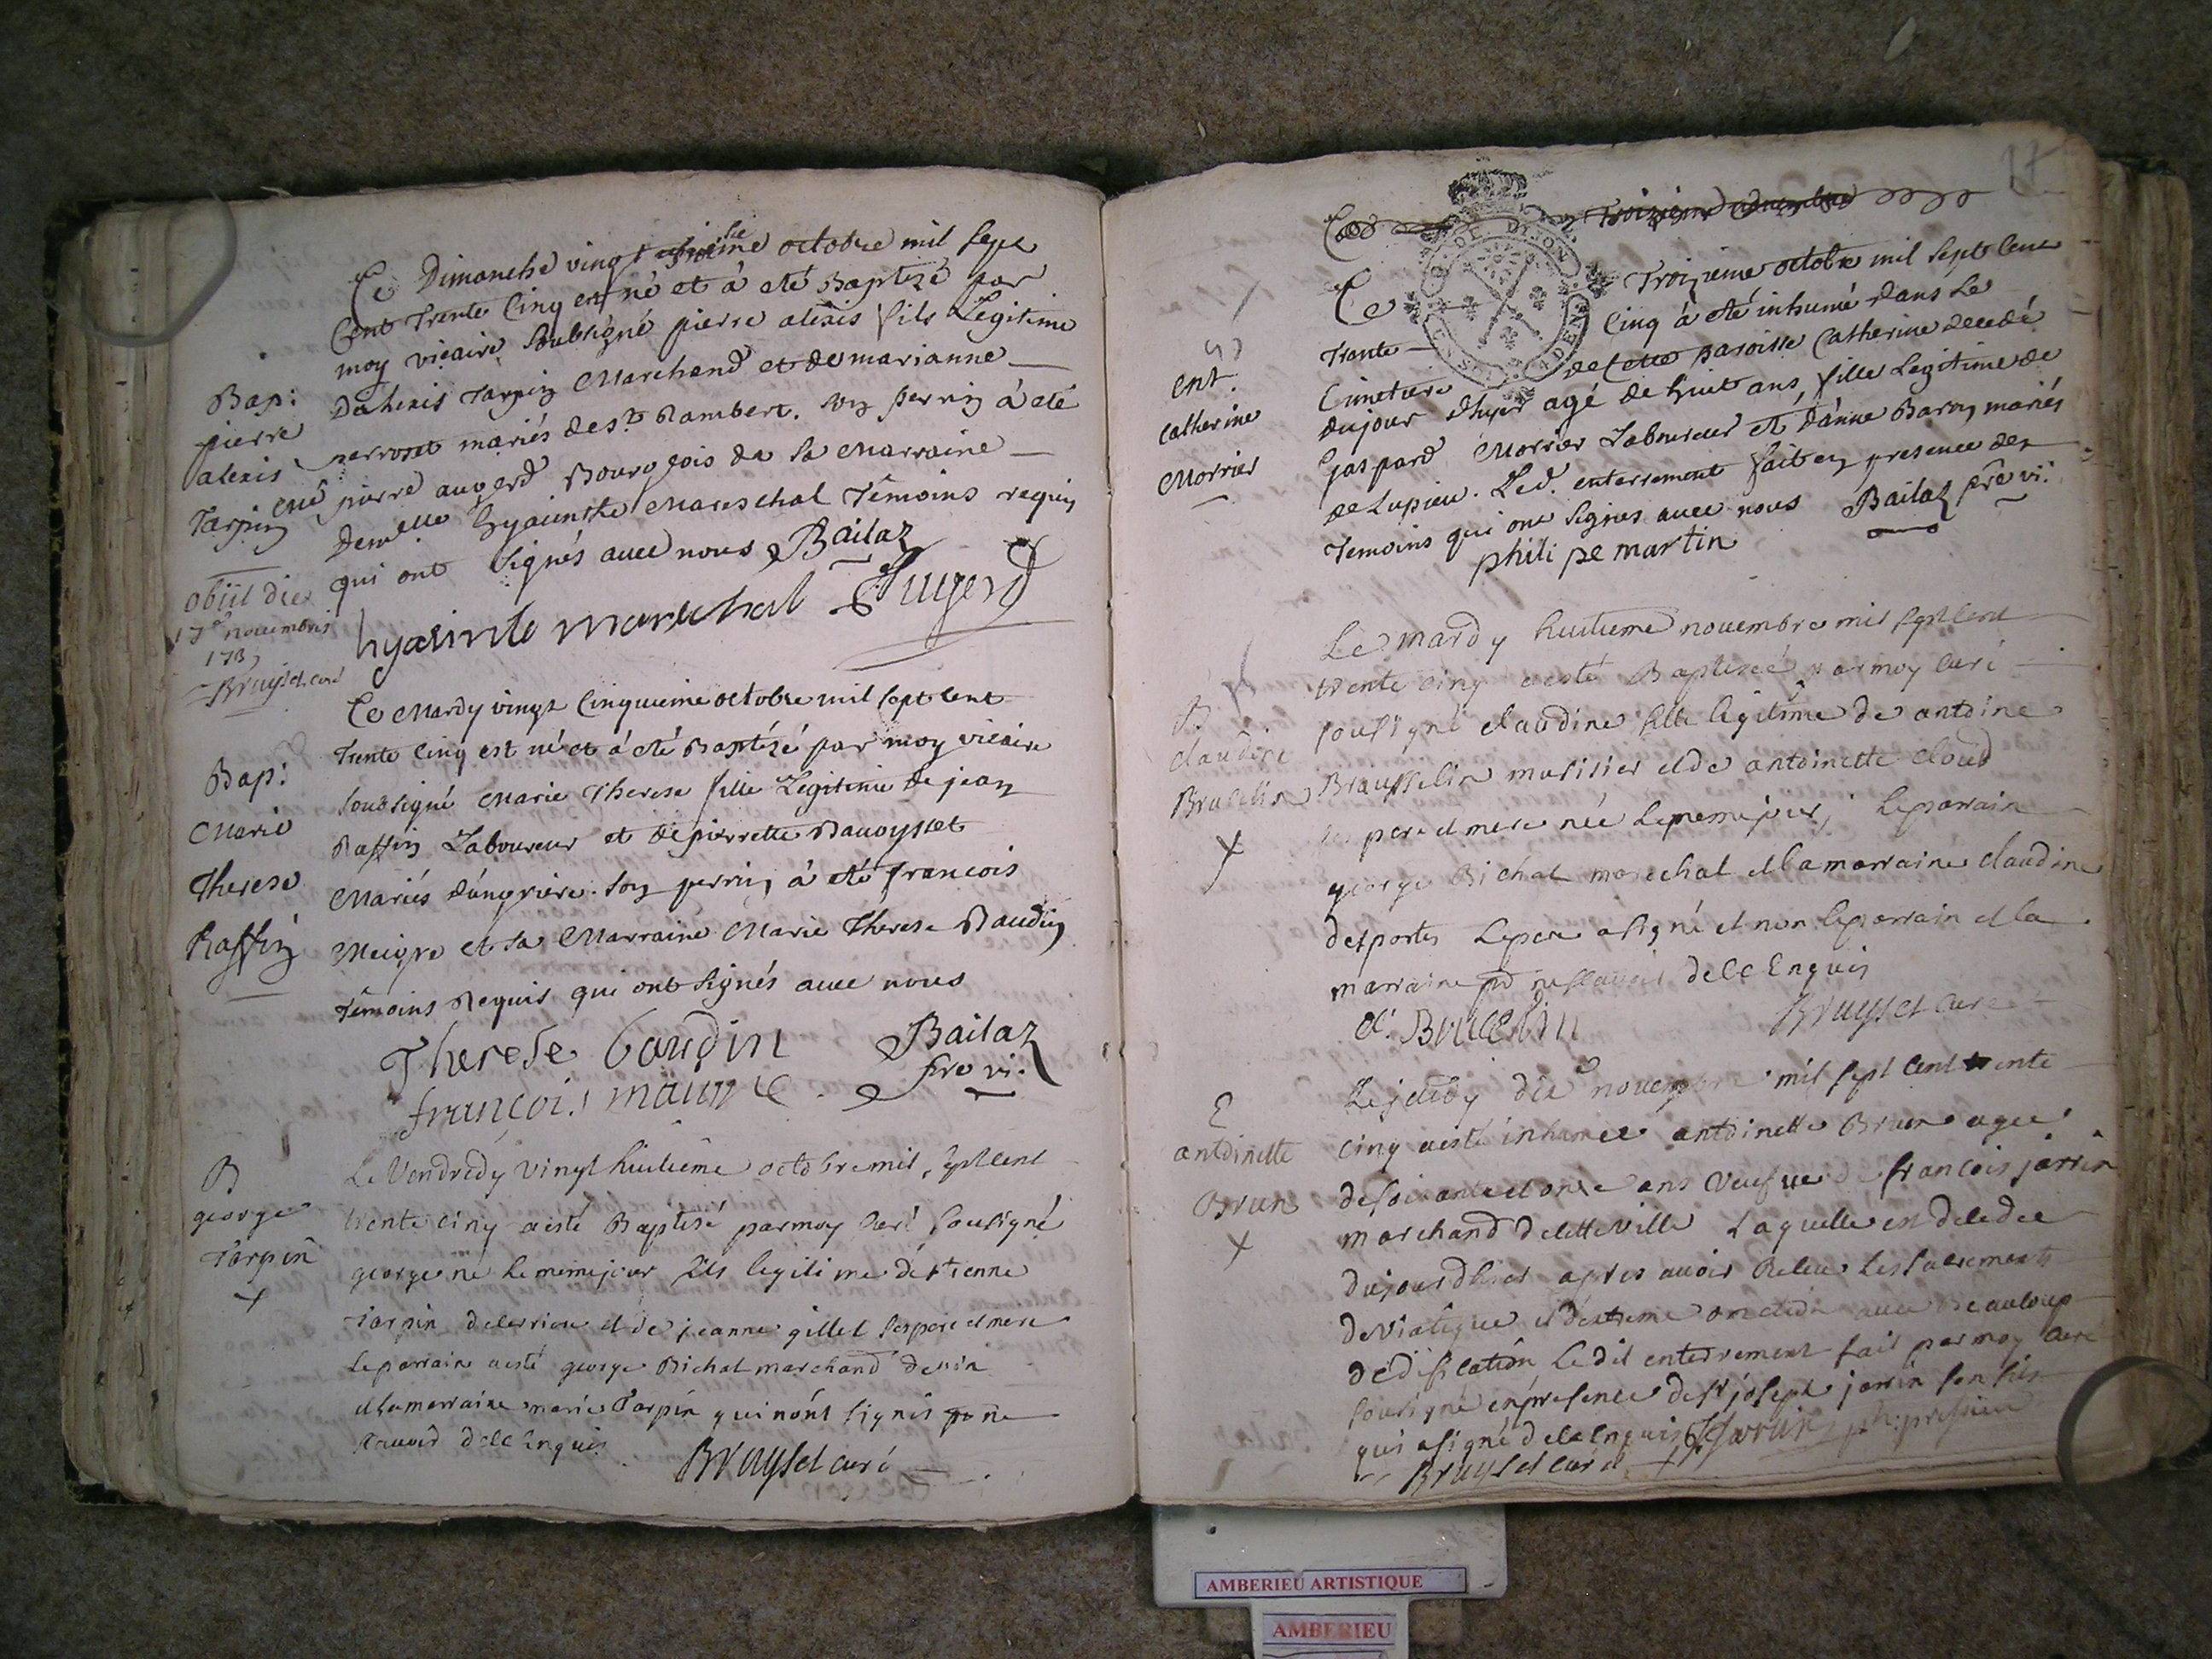 Bap:
pierre
alexis
Tarpin
obiit die
17e novembris
173
Bruyset curé
Ce Dimanche vingt octobre mil sept
Cent Trente Cinq est né et à eté Baptizé par
moy vicaire Soubsigné pierre alexis fils Legitime
Dalexis Tarpin Marchand et de marianne
perroset mariés de st. Rambert. son perrin à eté
pierre augerd Bourgois et la Marraine
Demelle hyacinthe Mareschal Témoins requis
qui ont Signés avec nous Bailaz
hyasinte marechal Augerd
Bap:
Marie
Therese
Raffin
Ce Mardy vingt Cinquieme octobre mil sept cent
Trente Cinq est né et à eté Baptizé par moy vicaire
soubsigné Marie Therese fille Legitime de jean
Raffin Laboureur et de pierrette
Mariés son perrin à eté francois
Meigre et sa Marraine Marie Therese Baudin
Témoins Requis qui ont Signés avec nous
Therese baudin Bailaz
francois pre vi.
B
george
Tarpin
Le Vendredy vingt huitième octobre mil sept cent
trente cinq a esté Baptisé par moy Curé sousigné
george né le meme jour fils legitime détienne
Tarpin et de jeanne gillet ses pere et mere
le parrain a esté george Bichat marchand
et la marraine marie Tarpin qui nont signés
scavoir de ce Enquis
Bruyset curé
17
Troizieme novembre
ent.
Catherine
Morrier
Ce Troizieme octobre mil sept Cent
Trante Cinq à eté inhumé dans Le
Cimetiere de Cette paroisse Catherine decedé
dujour dhyer agé de huit ans, fille Legitime de
Gaspard Morrier Laboureur et danne Baron mariés
de Lupieu. Led. enterrement fait en presence des
Temoins qui ont Signes avec nous Bailaz pre vi:
phili pe martin
B
claudine
Brucelin
Le mardy huitieme novembre mil sept cent
trente cinq a esté Baptisée par moy curé
sousigné claudine fille legitime de antoine
Brausselin et de antoinette
ses pere et mere née le meme jour, le parrain
george Bichat marechal et la marraine claudine
desportes le pere a signé et non le parrain et la
marraine de ce Enquis
Bruyset curé
E
antoinette
Brun
Le jeudy dix novembre mil sept cent trente
cinq a esté inhumée antoinette Brun agée
de soixante et onze ans veufve de francois jarrin
marchand de cette ville laquelle est decedee
dujourdhier apres avoir Reçeu les sacrements
de viatique et dextreme onction avec Beaucoup
dedification le dit enterrement fait par moy curé
sousigné en presence de sr joseph jarrin son fils
qui a signé de ce enquis Jarrin
Bruyset curé
AMBERIEU ARTISTIQUE
AMBERIEU